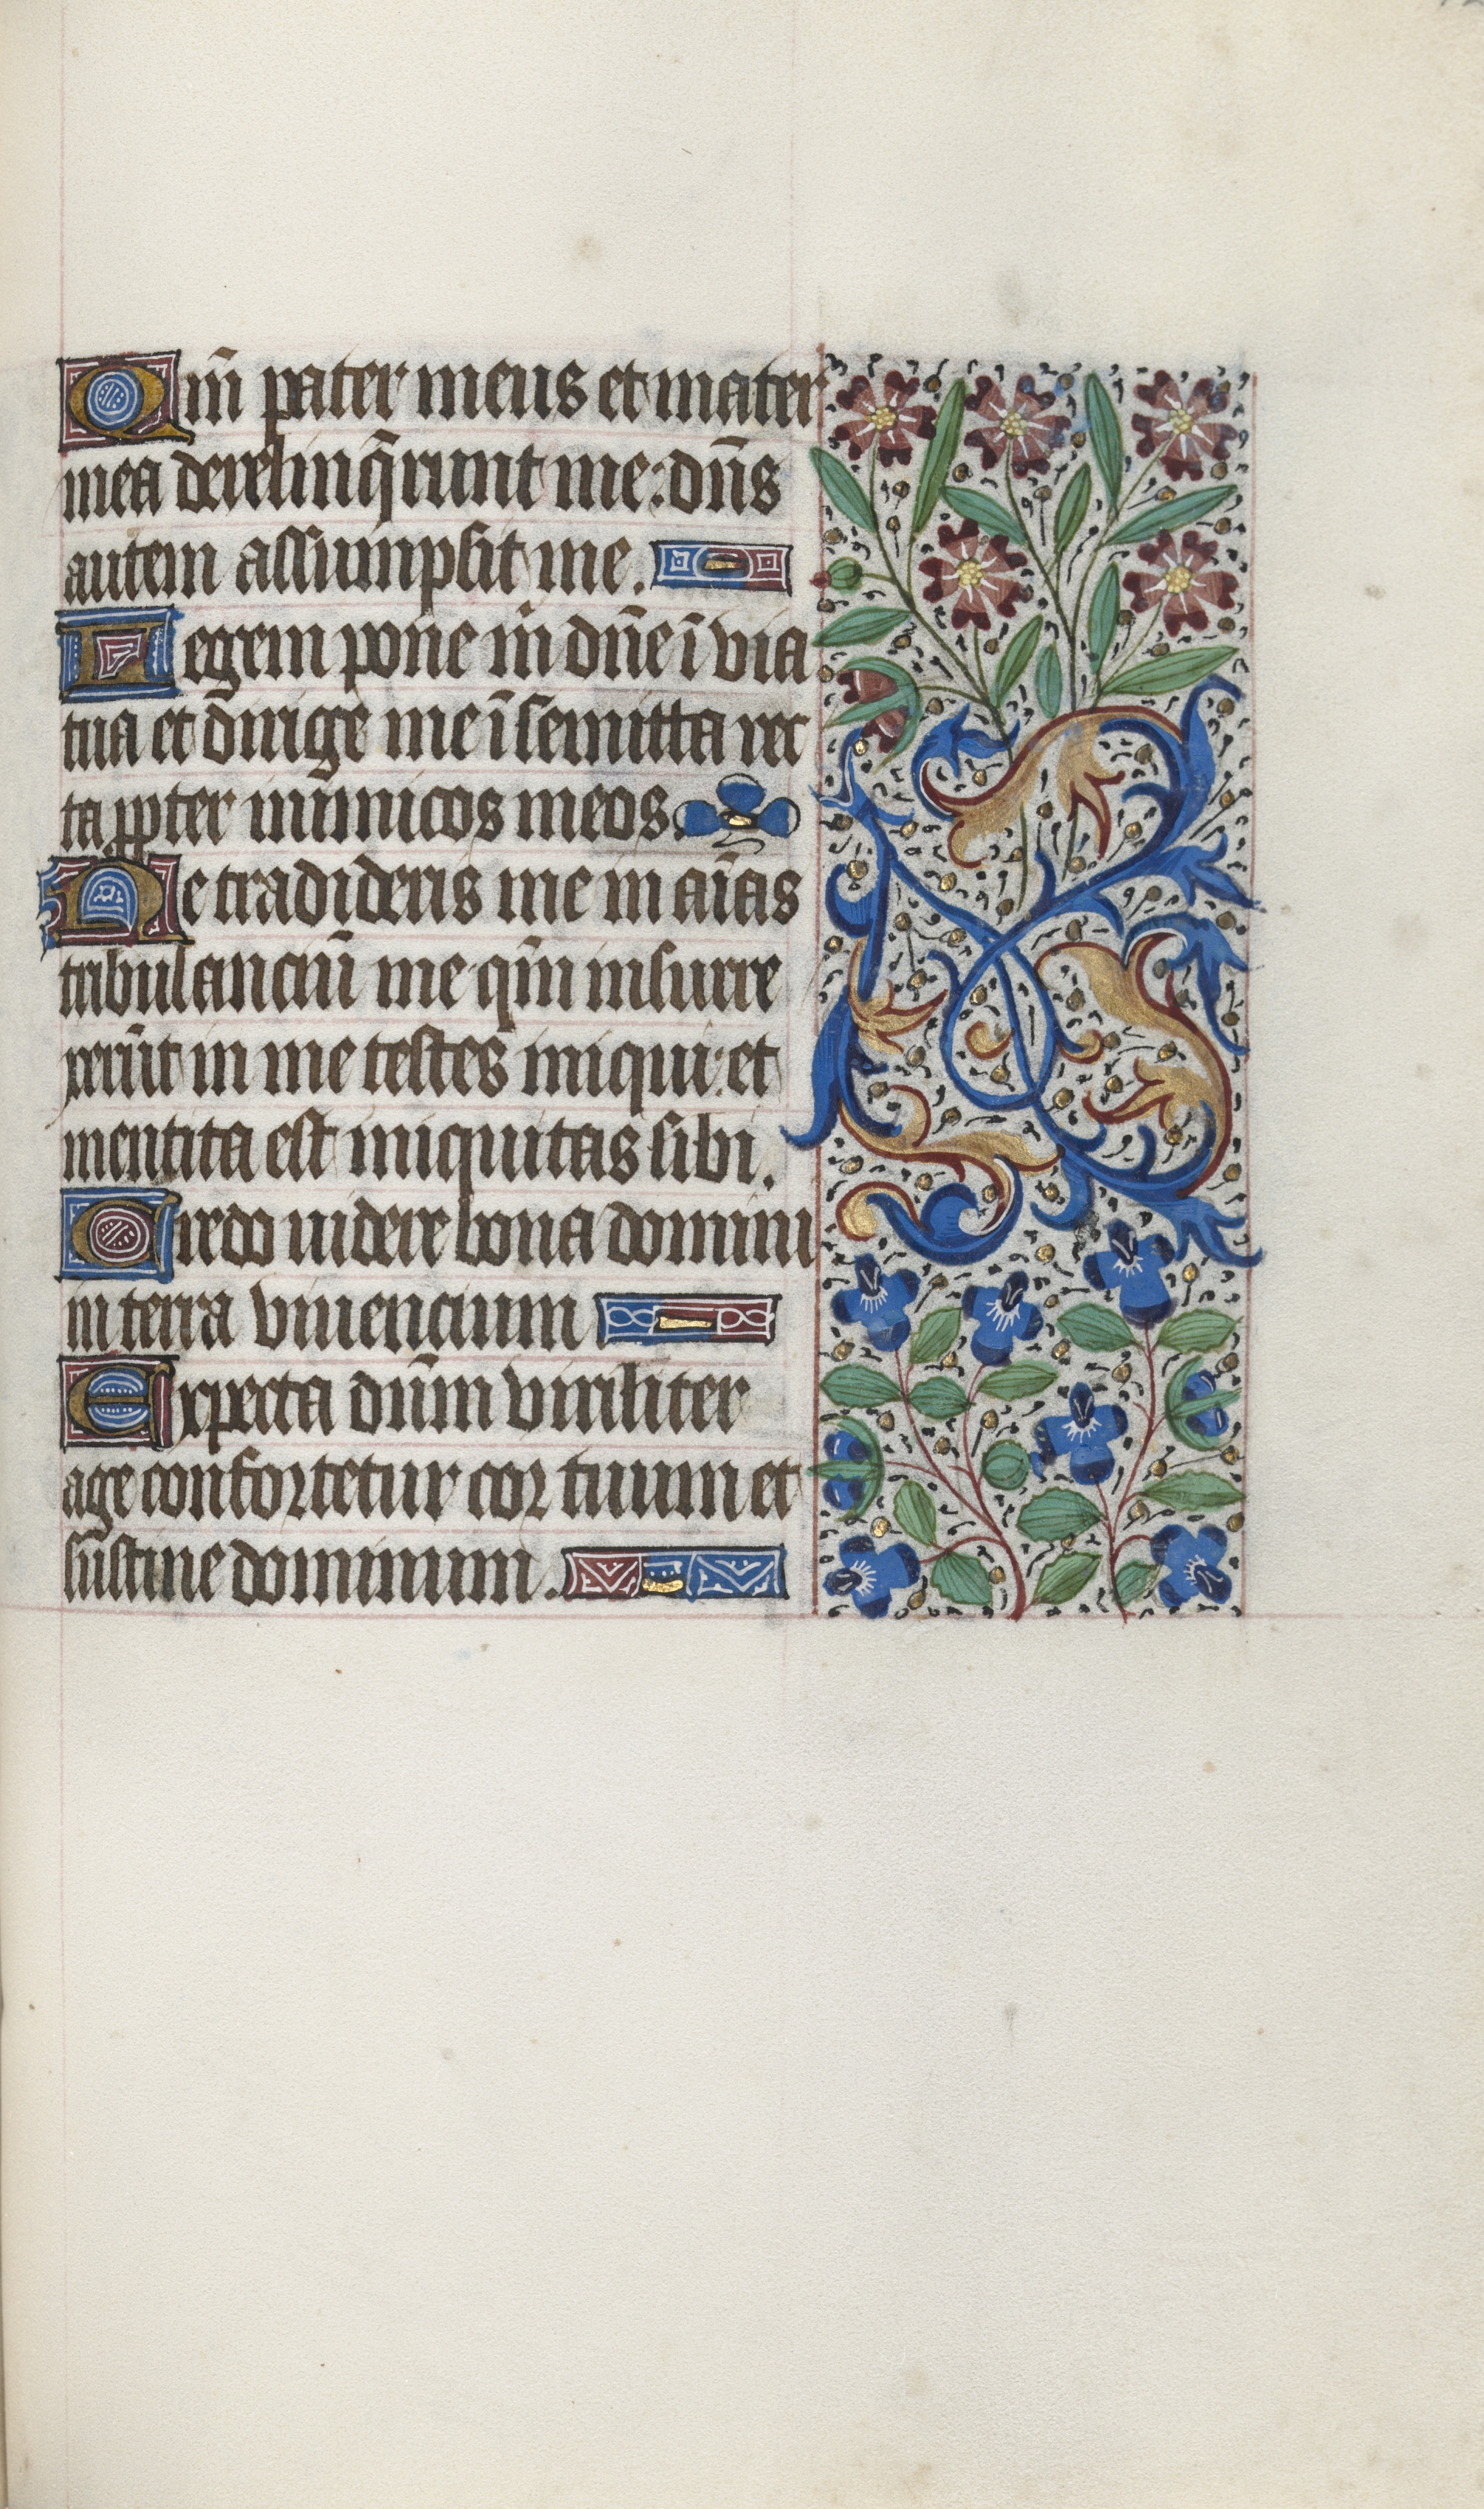 Qm̄ pater meus et mater
mea derelinq̄runt me: dn̄s
autem assumpsit me.
Legem pone m̄ dn̄e ī via
tua et dirige me ī semitta rec
ta ꝓpter inimicos meos.
Ne tradideris me in aīas
tribulanciū me qm̄ insurre
xerūt in me testes iniqui: et
mentita est iniquitas sibi.
Credo uidere bona domini
in terra viuencium
Expecta dūm viriliter
age confortetur cor tuum et
sustine dominum.